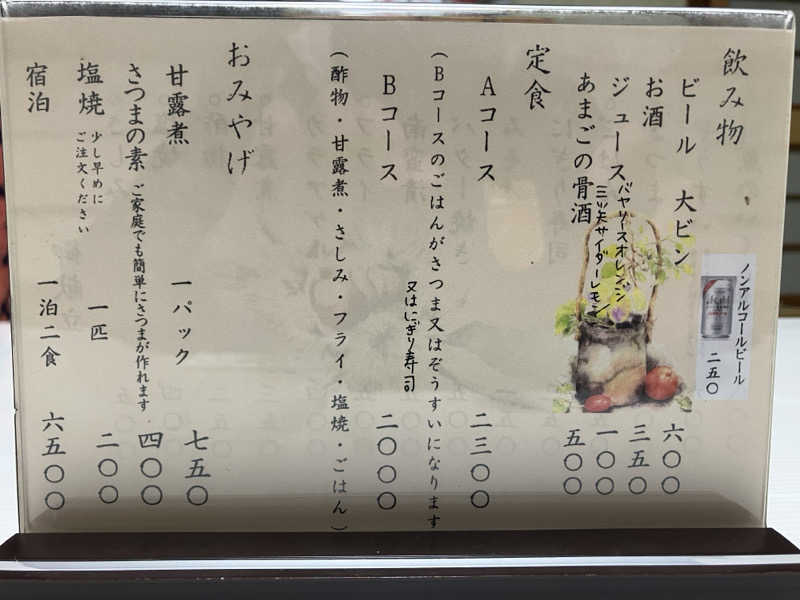 飲み物
ノンアルコールビール 二五〇
Asahi
ビール 大ビン 六〇〇
お酒 三五〇
ジュース 一〇〇
バヤリースオレンジ
三ツ矢サイダーレモン
あまごの骨酒 五〇〇
定食
Aコース 二三〇〇
(Bコースのごはんがさつま又はぞうすいになります
又はにぎり寿司
Bコース 二〇〇〇
(酢物・甘露煮・さしみ・フライ・塩焼・ごはん)
おみやげ
甘露煮 一パック 七五〇
さつまの素 ご家庭でも簡単にさつまが作れます 四〇〇
塩焼 少し早めに
ご注文ください 一匹 二〇〇
宿泊 一泊二食 六五〇〇